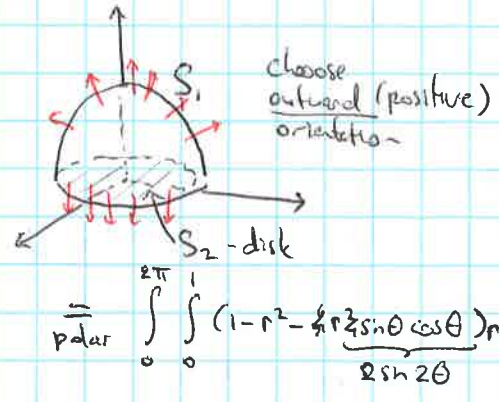 S₁
choose
outward (positive)
orientation
S₂ - disk
= polar ∫₀^{2π} ∫₀^{1} (1 - r² - r² 4 sinθ cosθ) r
2 sin 2θ